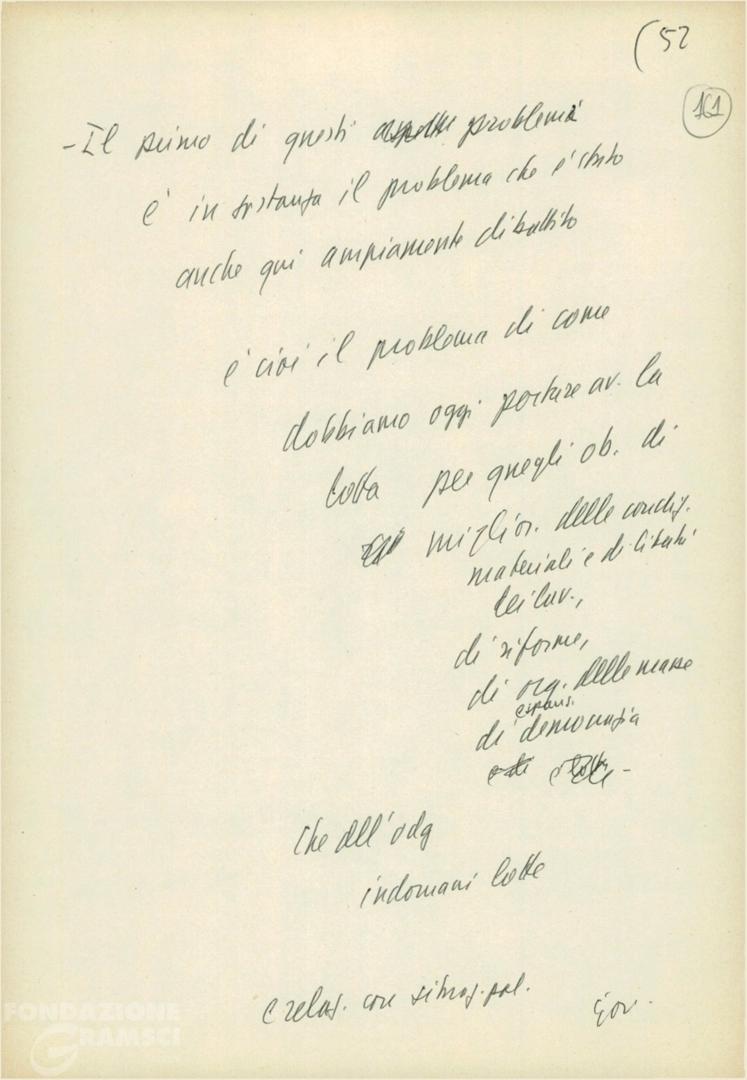 (52
161
- Il primo di questi problemi
è in sostanza il problema che è stato
anche qui ampiamente dibattito
e cioè il problema di come
dobbiamo oggi portare av. la
lotta per quegli ob. di
miglior. delle condiz.
materiali e di libertà
dei lav.,
di riforme,
di org. delle masse
espans.
di democrazia
che all'odg
indomani lotte
e relaz. con situaz. pol.
Gov.
FONDAZIONE
GRAMSCI